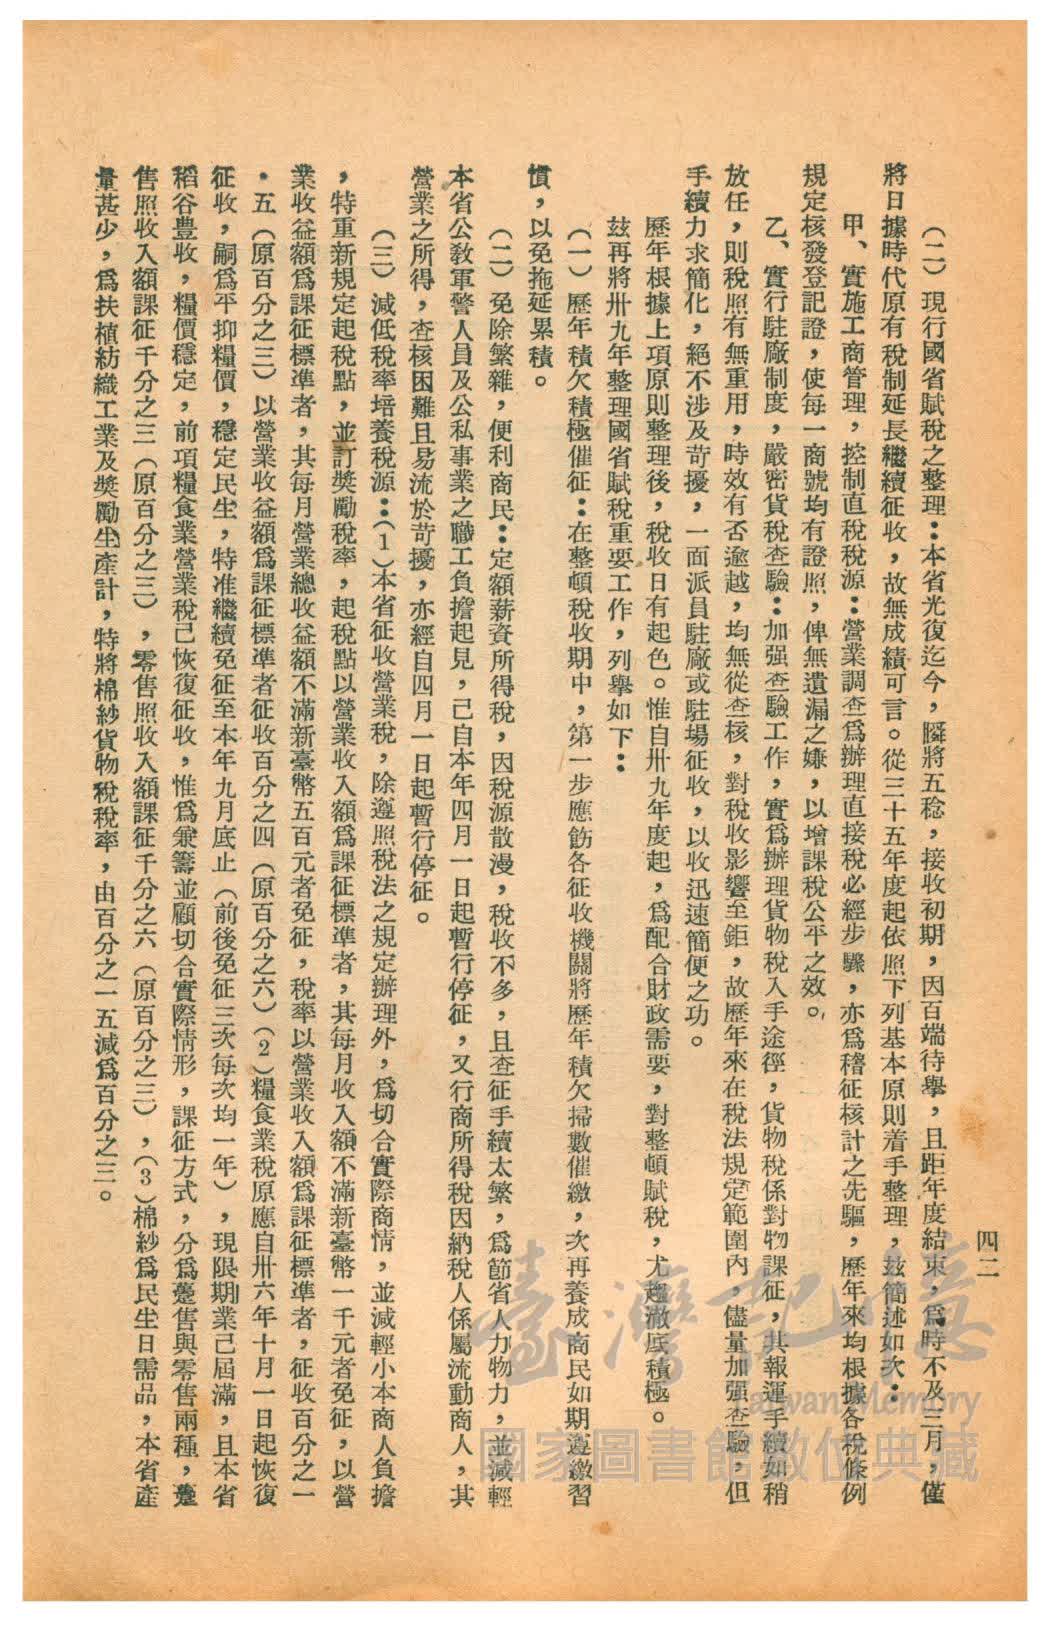 四二
（二）現行國省賦稅之整理：本省光復迄今，瞬將五稔，接收初期，因百端待舉，且距年度結束，爲時不及三月，僅
將日據時代原有稅制延長繼續征收，故無成績可言。從三十五年度起依照下列基本原則着手整理，玆簡述如次：
甲、實施工商管理，控制直稅稅源：營業調查爲辦理直接稅必經步驟，亦爲稽征核計之先驅，歷年來均根據各稅條例
規定核發登記證，使每一商號均有證照，俾無遺漏之嫌，以增課稅公平之效。
乙、實行駐廠制度，嚴密貨稅查驗：加强查驗工作，實爲辦理貨物稅入手途徑，貨物稅係對物課征，其報運手續如稍
放任，則稅照有無重用，時效有否逾越，均無從查核，對稅收影響至鉅，故歷年來在稅法規定範圍內，儘量加强查驗，但
手續力求簡化，絕不涉及苛擾，一面派員駐廠或駐場征收，以收迅速簡便之功。
歷年根據上項原則整理後，稅收日有起色。惟自卅九年度起，爲配合財政需要，對整頓賦稅，尤趨澈底積極。
玆再將卅九年整理國省賦稅重要工作，列舉如下：
（一）歷年積欠積極催征：在整頓稅收期中，第一步應飭各征收機關將歷年積欠掃數催繳，次再養成商民如期遵繳習
慣，以免拖延累積。
（二）免除繁雜，便利商民：定額薪資所得稅，因稅源散漫，稅收不多，且查征手續太繁，爲節省人力物力，並減輕
本省公敎軍警人員及公私事業之職工負擔起見，已自本年四月一日起暫行停征，又行商所得稅因納稅人係屬流動商人，其
營業之所得，查核困難且易流於苛擾，亦經自四月一日起暫行停征。
（三）減低稅率培養稅源：（1）本省征收營業稅，除遵照稅法之規定辦理外，爲切合實際商情，並減輕小本商人負擔
，特重新規定起稅點，並訂奬勵稅率，起稅點以營業收入額爲課征標準者，其每月收入額不滿新臺幣一千元者免征，以營
業收益額爲課征標準者，其每月營業總收益額不滿新臺幣五百元者免征，稅率以營業收入額爲課征標準者，征收百分之一
．五（原百分之三）以營業收益額爲課征標準者征收百分之四（原百分之六）（2）糧食業稅原應自卅六年十月一日起恢復
征收，嗣爲平抑糧價，穩定民生，特准繼續免征至本年九月底止（前後免征三次每次均一年），現限期業已屆滿，且本省
稻谷豐收，糧價穩定，前項糧食業營業稅已恢復征收，惟爲兼籌並顧切合實際情形，課征方式，分爲躉售與零售兩種，躉
售照收入額課征千分之三（原百分之三），零售照收入額課征千分之六（原百分之三），（3）棉紗爲民生日需品，本省產
量甚少，爲扶植紡織工業及奬勵生產計，特將棉紗貨物稅稅率，由百分之一五減爲百分之三。
臺灣記憶
Taiwan Memory
國家圖書館數位典藏